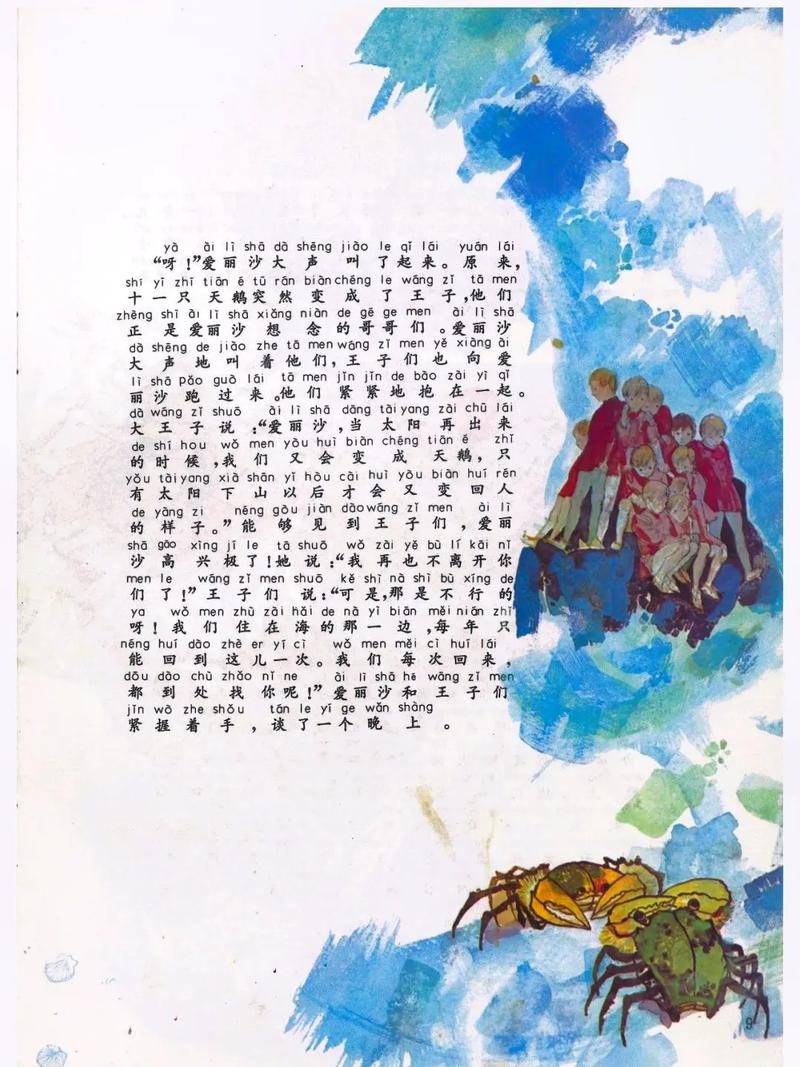 yà ài lì shā dà shēng jiào le qǐ lái yuán lái
“呀！”爱丽沙大声叫了起来。原来，
shí yī zhī tiān é tū rán biàn chéng le wáng zǐ tā men
十一只天鹅突然变成了王子，他们
zhèng shì ài lì shā xiǎng niàn de gē ge men ài lì shā
正是爱丽沙想念的哥哥们。爱丽沙
dà shēng de jiào zhe tā men wáng zǐ men yě xiàng ài
大声地叫着他们，王子们也向爱
lì shā pǎo guò lái tā men jǐn jǐn de bào zài yì qǐ
丽沙跑过来。他们紧紧地抱在一起。
dà wáng zǐ shuō ài lì shā dāng tài yang zài chū lái
大王子说：“爱丽沙，当太阳再出来
de shí hou wǒ men yòu huì biàn chéng tiān é zhǐ
的时候，我们又会变成天鹅，只
yǒu tài yang xià shān yǐ hòu cái huì yòu biàn huí rén
有太阳下山以后才会又变回人
de yàng zi néng gòu jiàn dào wáng zǐ men ài lì
的样子。”能够见到王子们，爱丽
shā gāo xìng jí le tā shuō wǒ zài yě bù lí kāi nǐ
沙高兴极了！她说：“我再也不离开你
men le wáng zǐ men shuō kě shì nà shì bù xíng de
们了！”王子们说：“可是，那是不行的
ya wǒ men zhù zài hǎi de nà yì biān měi nián zhǐ
呀！我们住在海的那一边，每年只
néng huí dào zhè er yí cì wǒ men měi cì huí lái
能回到这儿一次。我们每次回来，
dōu dào chù zhǎo nǐ ne ài lì shā hé wáng zǐ men
都到处找你呢！”爱丽沙和王子们
jǐn wò zhe shǒu tán le yí ge wǎn shàng
紧握着手，谈了一个晚上。
9